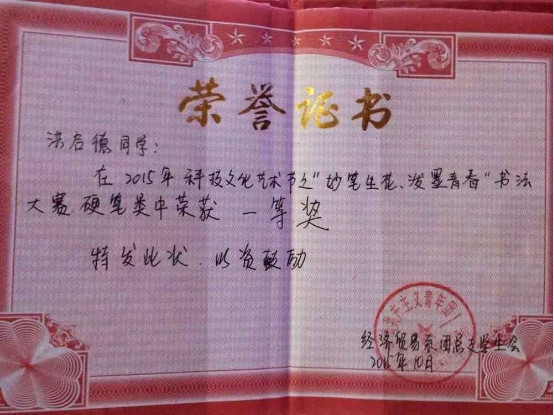 荣誉证书
启德同学：
在2015年科技文化艺术节之"妙笔生花、泼墨青春"书法
大赛硬笔类中荣获 一等奖
特发此状、以资鼓励
共产主义青年团
经济贸易系团总支学生会
2015年10月